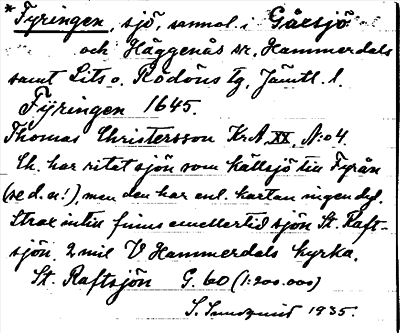 * Fyringen, sjö, anmal. i Gåxsjö
och Häggenås sr, Hammerdals
samt Lits o. Rödöns tg, Jämtl. l.
Fÿringen 1645.
Thomas Christersson KrA XX, N:o 4.
Ch. har ritat sjön som källsjö till Fyrån
(se d. o!), men den har enl. kartan ingen dyl.
Strax intill finns emellertid sjön St. Raft-
sjön, 2 mil V Hammerdals kyrka.
St. Raftsjön G. 60 (1:200.000)
1935.